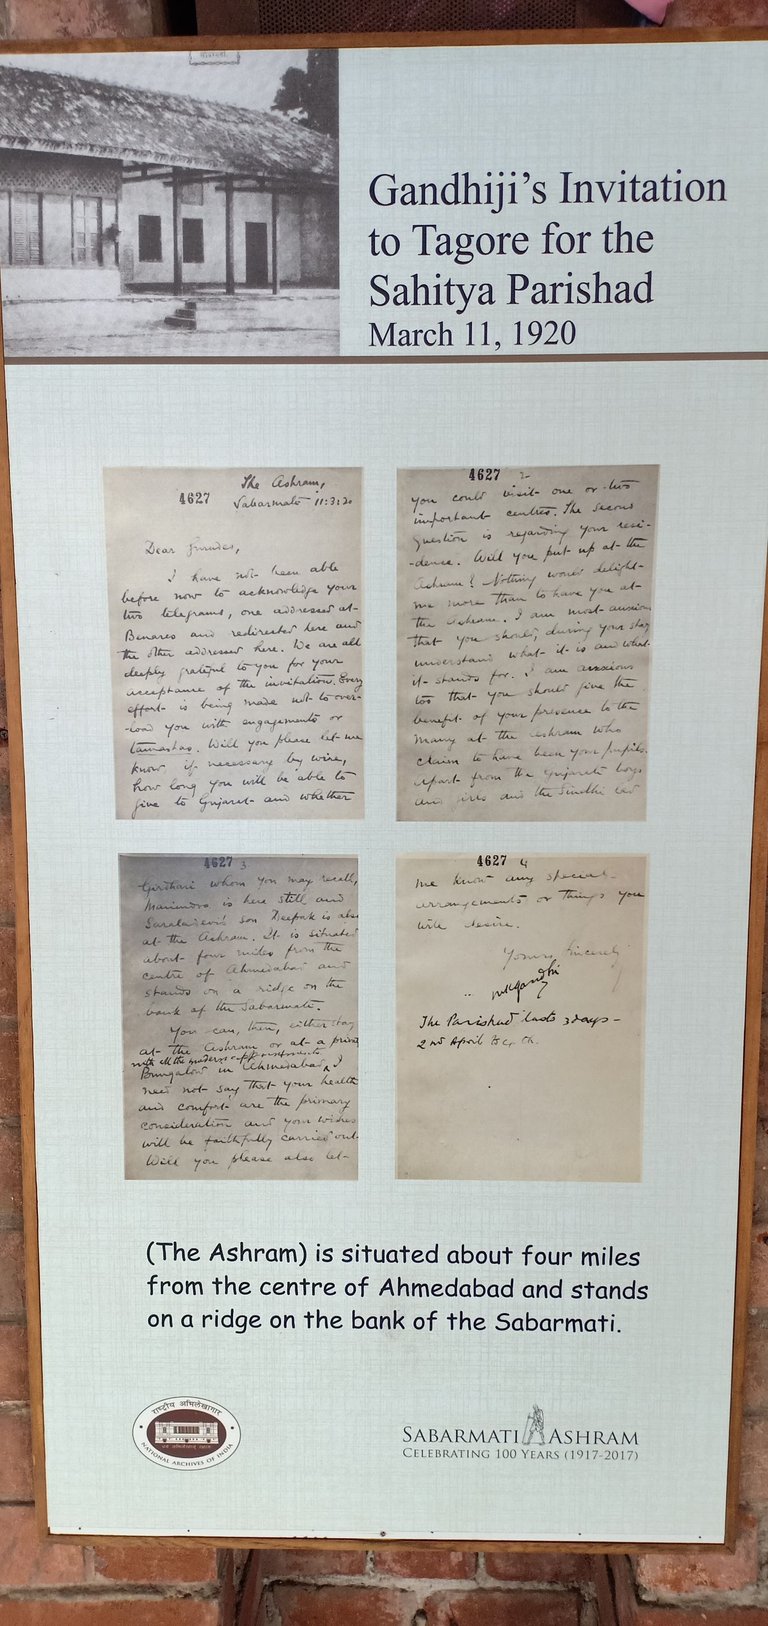 Gandhiji's Invitation
to Tagore for the
Sahitya Parishad
March 11, 1920
4627
The Ashram,
Sabarmati 11:3:20
Dear Gurudev,
I have not been able
before now to acknowledge your
two telegrams, one addressed at
Benares and redirected here and
the other addressed here. We are all
deeply grateful to you for your
acceptance of the invitation. Every
effort is being made not to over-
-load you with engagements or
tamashas. Will you please let me
know, if necessary by wire,
how long you will be able to
give to Gujarat and whether
4627 2
you could visit one or two
important centres. The second
question is regarding your resi-
-dence. Will you put up at the
Ashram? Nothing would delight
me more than to have you at
the Ashram. I am most anxious
that you should, during your stay
understand what it is and what
it stands for. I am anxious
too that you should give the
benefit of your presence to the
many at the Ashram who
claim to have been your pupils.
Apart from the Gujarati boys
and girls and the Sindhi lad
4627 3
Girdhari whom you may recall,
Manindra is here still and
Saraladevi's son Deepak is also
at the Ashram. It is situated
about four miles from the
centre of Ahmedabad and
stands on a ridge on the
bank of the Sabarmati.
You can, then, either stay
at the Ashram or at a private
with all the modern appointments
Bungalow in Ahmedabad, I
need not say that your health
and comfort are the primary
consideration and your wishes
will be faithfully carried out.
Will you please also let
4627 4
me know any special
arrangements or things you
will desire.
Yours sincerely
MKGandhi
The Parishad lasts 3 days -
2nd April
(The Ashram) is situated about four miles
from the centre of Ahmedabad and stands
on a ridge on the bank of the Sabarmati.
राष्ट्रीय अभिलेखागार
NATIONAL ARCHIVES OF INDIA
SABARMATI ASHRAM
CELEBRATING 100 YEARS (1917-2017)